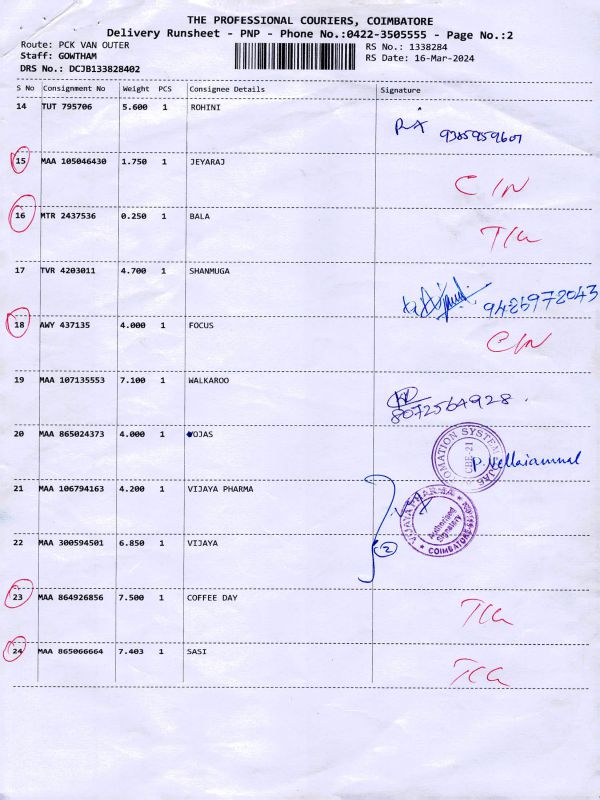 THE PROFESSIONAL COURIERS, COIMBATORE
Delivery Runsheet - PNP - Phone No.:0422-3505555 - Page No.:2
Route: PCK VAN OUTER
Staff: GOWTHAM
DRS No.: DCJB133828402
RS No.: 1338284
RS Date: 16-Mar-2024
S No Consignment No Weight PCS Consignee Details Signature
14 TUT 795706 5.600 1 ROHINI
9385959607
15 MAA 105046430 1.750 1 JEYARAJ C/N
16 MTR 2437536 0.250 1 BALA
17 TVR 4203011 4.700 1 SHANMUGA
18 AWY 437135 4.000 1 FOCUS C/N
19 MAA 107135553 7.100 1 WALKAROO
8072564928
20 MAA 865024373 4.000 1 VOJAS P. Vellaiammal
21 MAA 106794163 4.200 1 VIJAYA PHARMA
VIJAYA PHARMA Authorised Signatory COIMBATORE
2
22 MAA 300594501 6.850 1 VIJAYA
23 MAA 864926856 7.500 1 COFFEE DAY
24 MAA 865066664 7.403 1 SASI